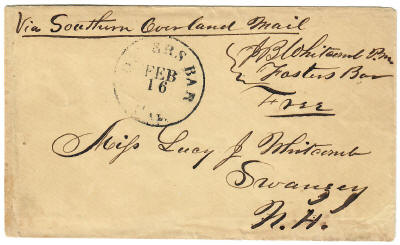 Via Southern Overland Mail
J B Whitcomb P.m
Fosters Bar
Free
ERS BAR
FEB
16
CAL.
Miss Lucy J Whitcomb
Swanzey
N. H.